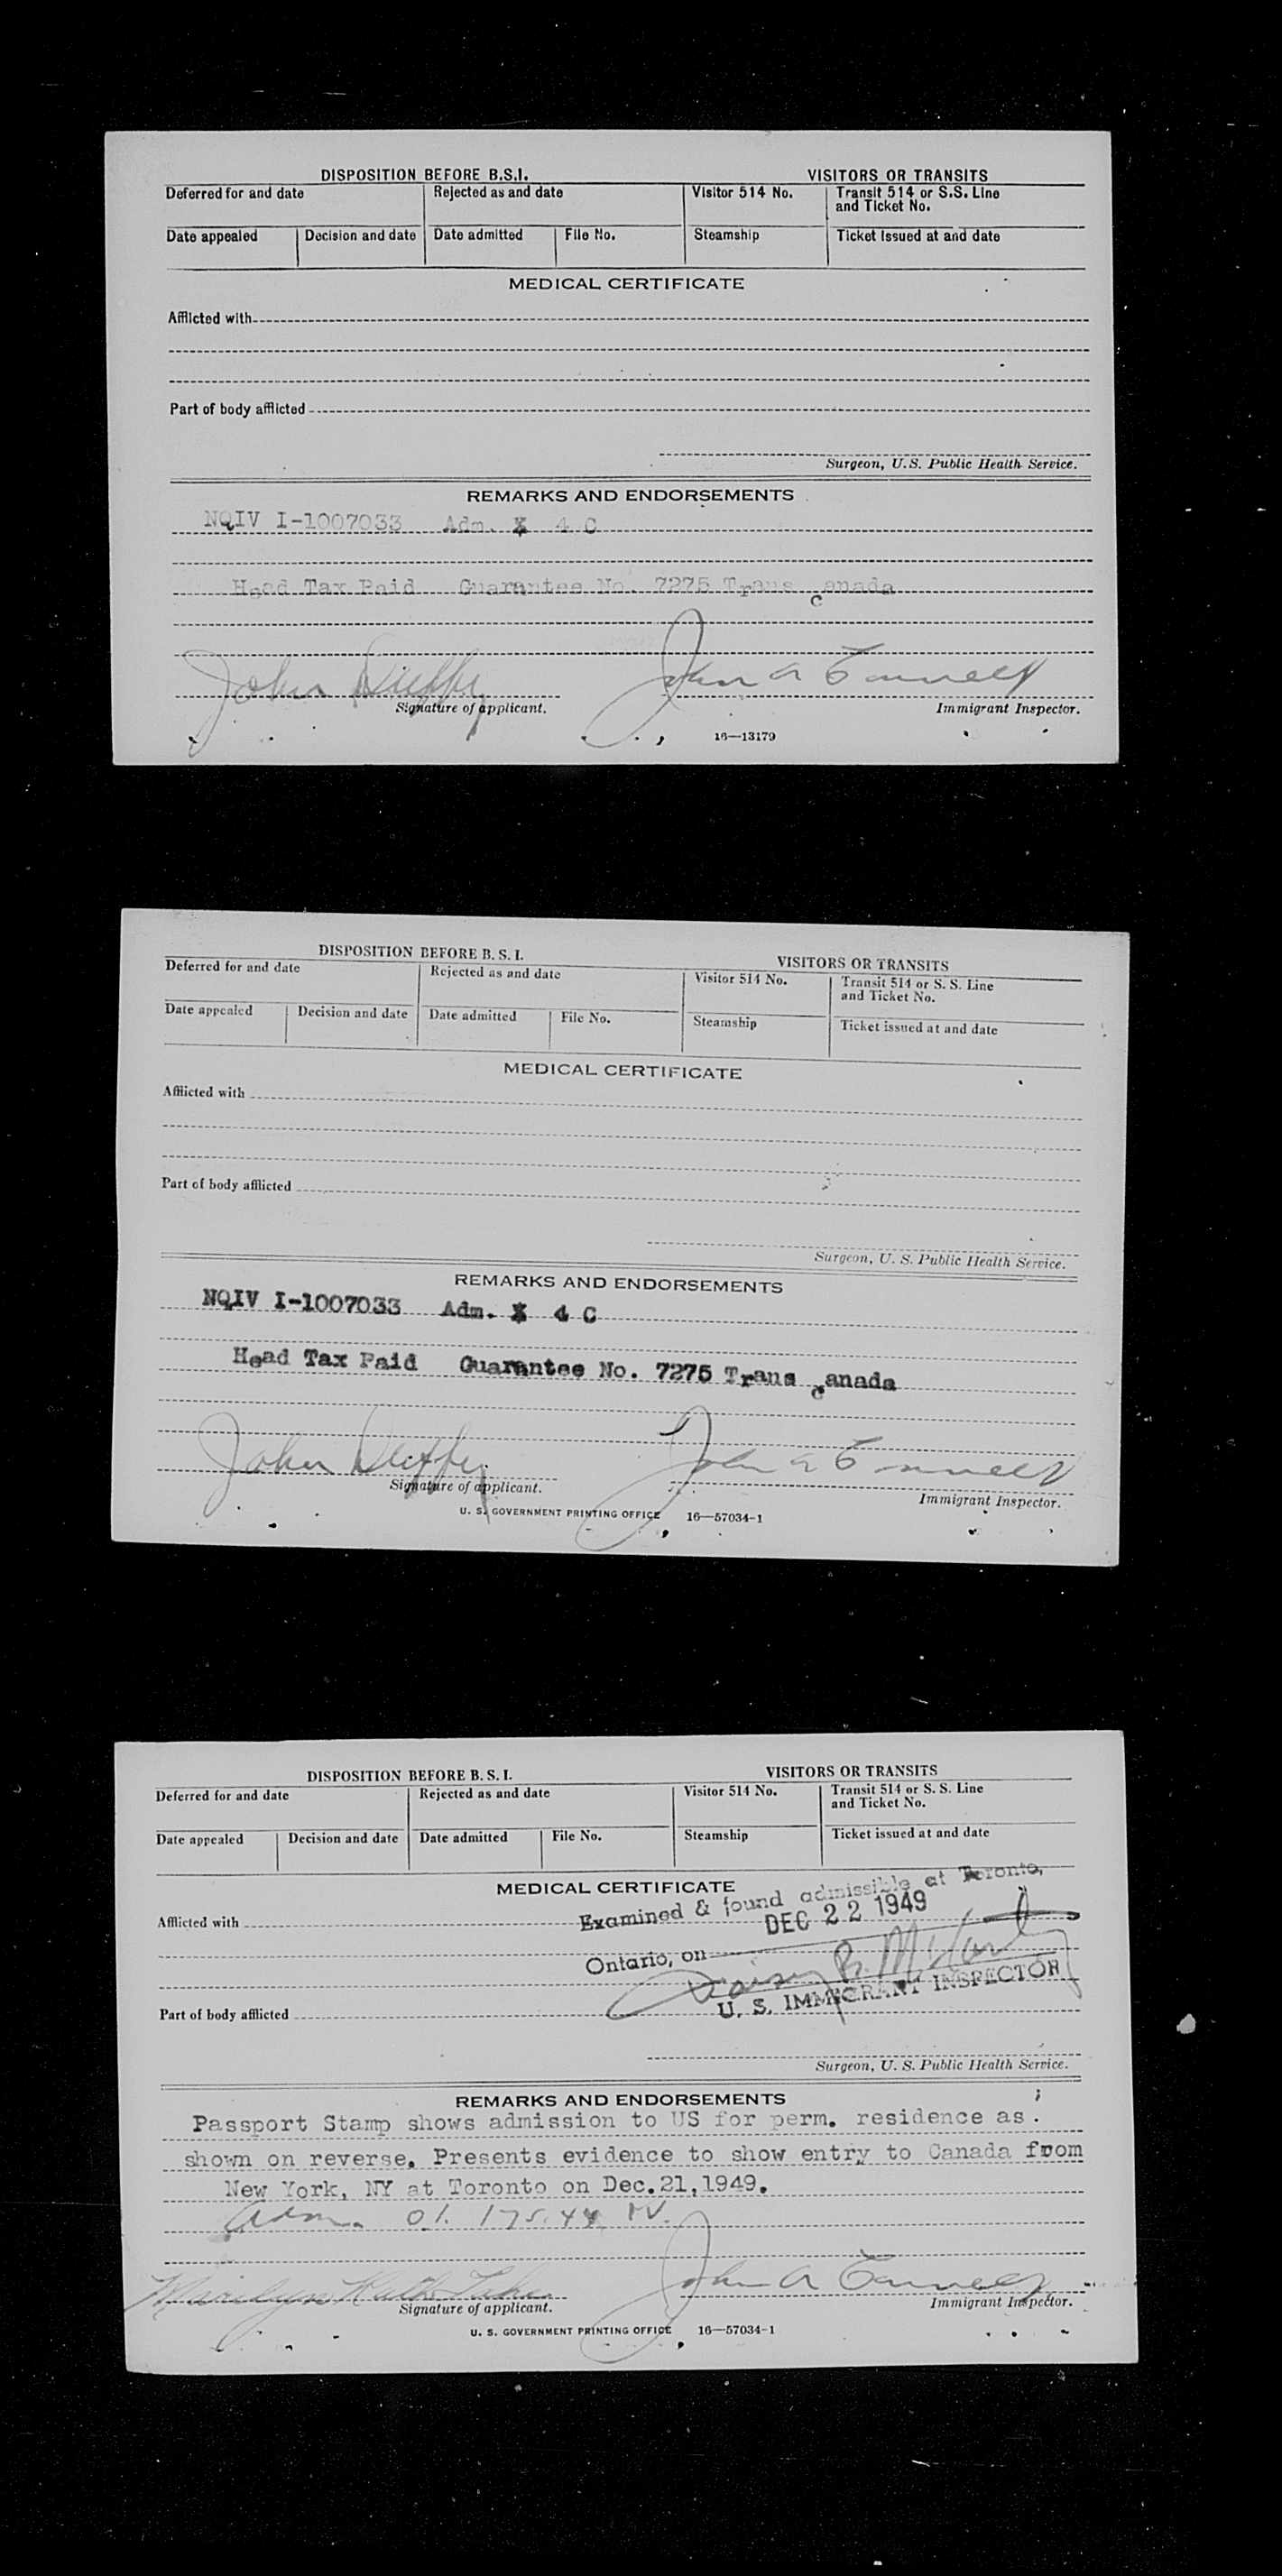 DISPOSITION BEFORE B.S.I. VISITORS OR TRANSITS
Deferred for and date Rejected as and date Visitor 514 No. Transit 514 or S.S. Line
and Ticket No.
Date appealed Decision and date Date admitted File No. Steamship Ticket Issued at and date
MEDICAL CERTIFICATE
Afflicted with
Part of body afflicted
Surgeon, U.S. Public Health Service.
REMARKS AND ENDORSEMENTS
NQIV I-1007033 Adm. X 4 C
Head Tax Paid Guarantee No. 7275 Trans Canada
John Duffy John A
Signature of applicant. Immigrant Inspector.
16—13179
DISPOSITION BEFORE B. S. I. VISITORS OR TRANSITS
Deferred for and date Rejected as and date Visitor 514 No. Transit 514 or S. S. Line
and Ticket No.
Date appealed Decision and date Date admitted File No. Steamship Ticket issued at and date
MEDICAL CERTIFICATE
Afflicted with
Part of body afflicted
Surgeon, U. S. Public Health Service.
REMARKS AND ENDORSEMENTS
NQIV I-1007033 Adm. X 4 C
Head Tax Paid Guarantee No. 7275 Trans Canada
John Duffy John A
Signature of applicant. Immigrant Inspector.
U. S. GOVERNMENT PRINTING OFFICE 16—57034-1
DISPOSITION BEFORE B. S. I. VISITORS OR TRANSITS
Deferred for and date Rejected as and date Visitor 514 No. Transit 514 or S. S. Line
and Ticket No.
Date appealed Decision and date Date admitted File No. Steamship Ticket issued at and date
MEDICAL CERTIFICATE
Examined & found admissible at Toronto,
Afflicted with
DEC 22 1949
Ontario, on
U. S. IMMIGRANT INSPECTOR
Part of body afflicted
Surgeon, U. S. Public Health Service.
REMARKS AND ENDORSEMENTS
Passport Stamp shows admission to US for perm. residence as
shown on reverse. Presents evidence to show entry to Canada from
New York, NY at Toronto on Dec.21,1949.
Adm. 01. 175.44
Marilyn Ruth John A
Signature of applicant. Immigrant Inspector.
U. S. GOVERNMENT PRINTING OFFICE 16—57034-1